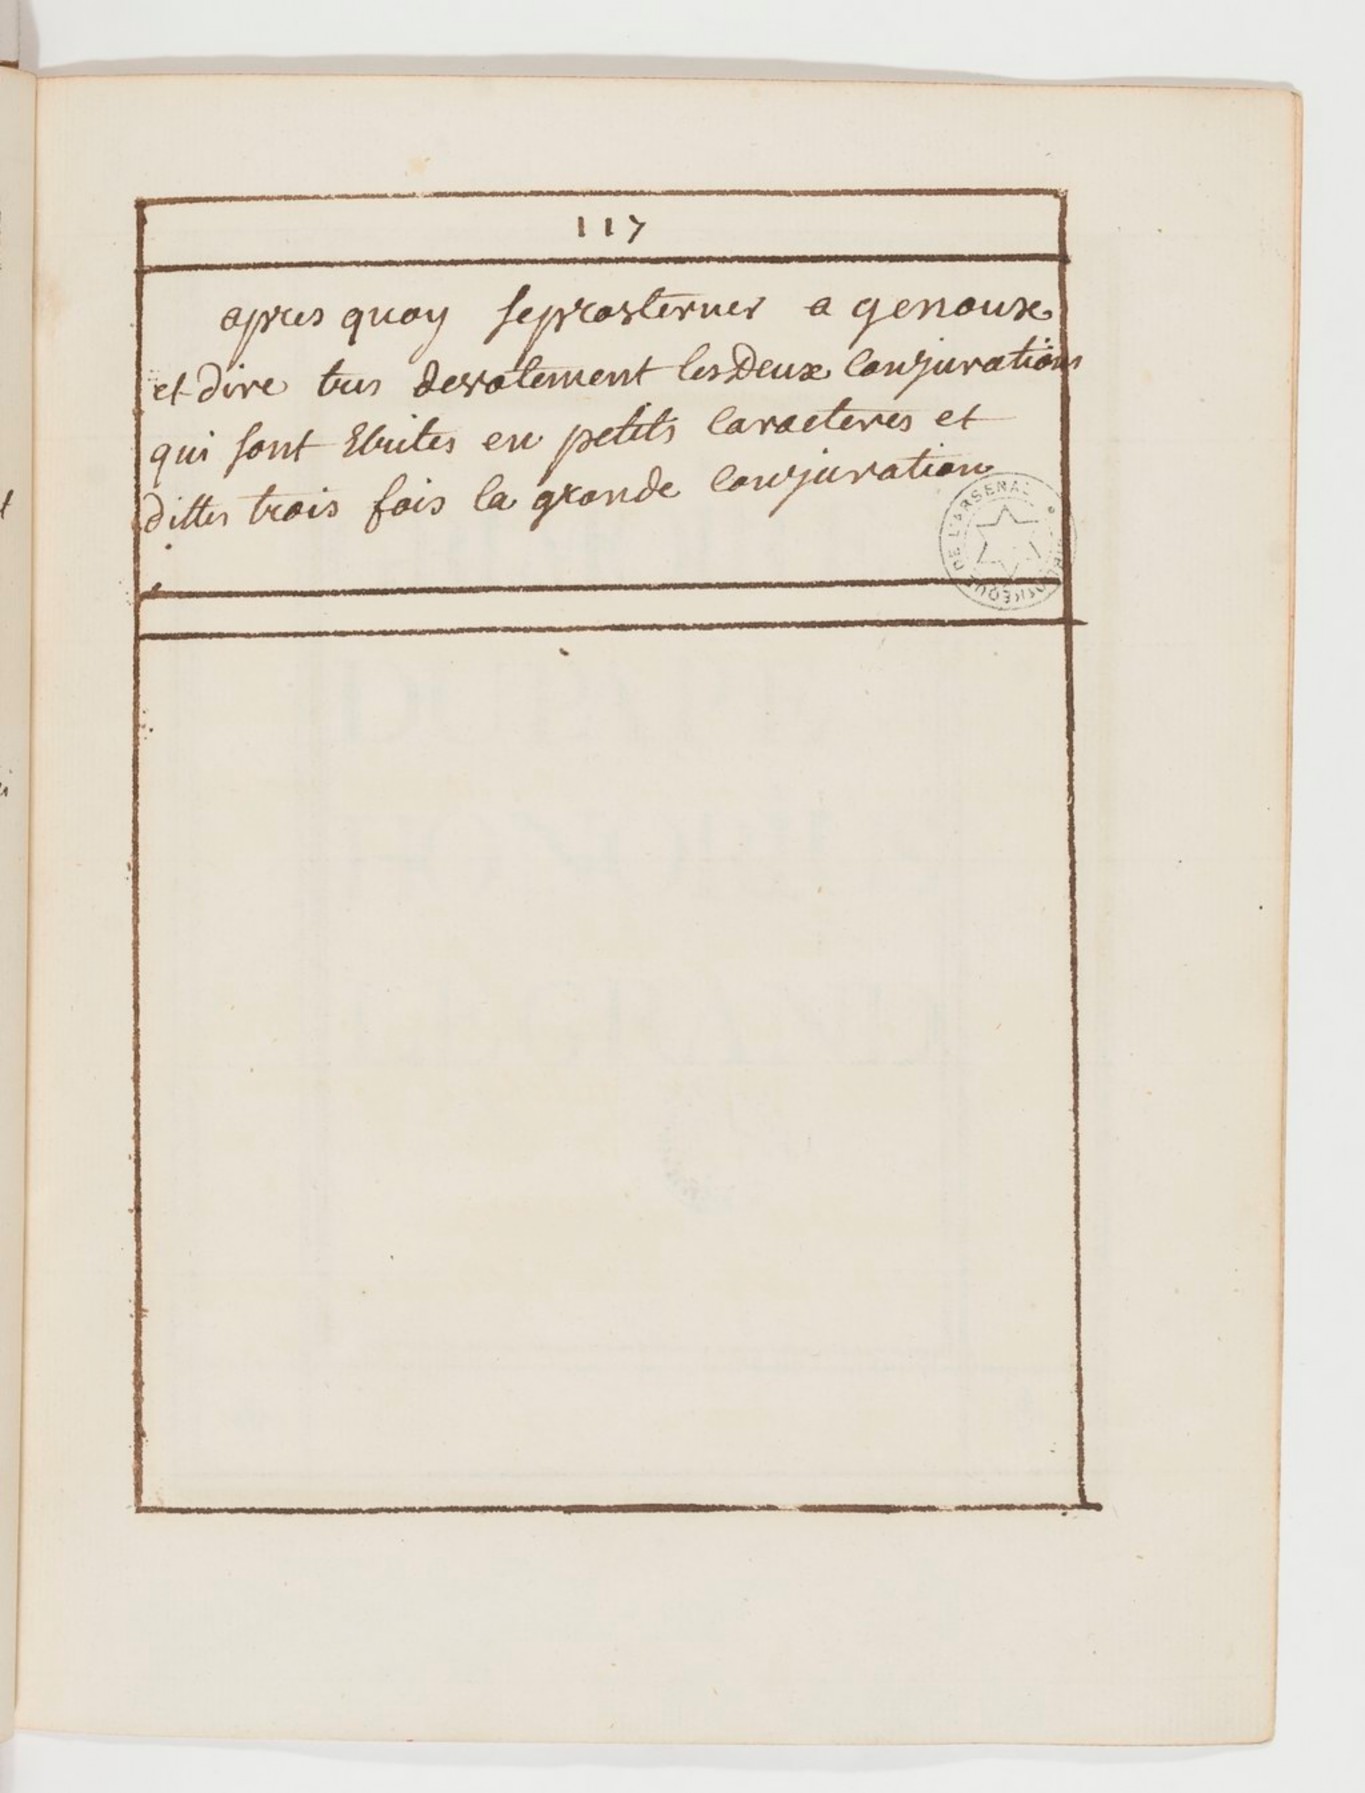 117
apres quoy se prosterner a genoux
et dire tres devotement les deux conjurations
qui sont Ecrites en petits caracteres et
dittes trois fois la grande conjuration
BIBLIOTHEQUE DE L'ARSENAL